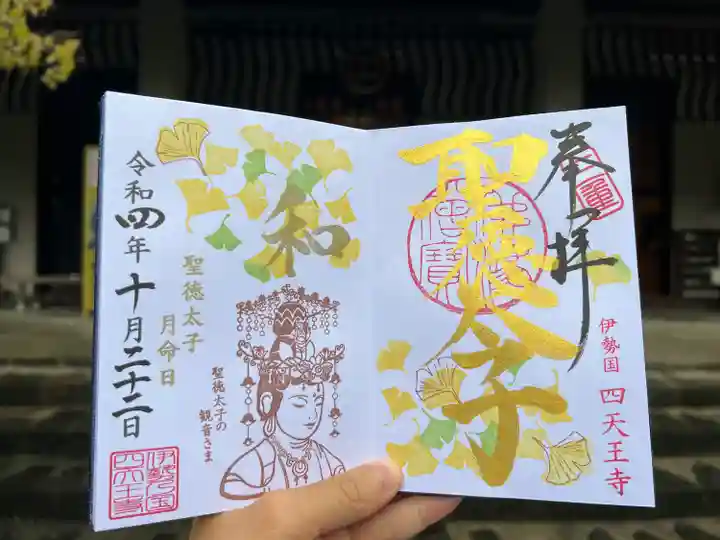 奉拝
聖徳太子
伊勢国 四天王寺
和
聖徳太子
月命日
令和四年十月二十二日
聖徳太子の
観音さま
伊勢之国
四天王寺